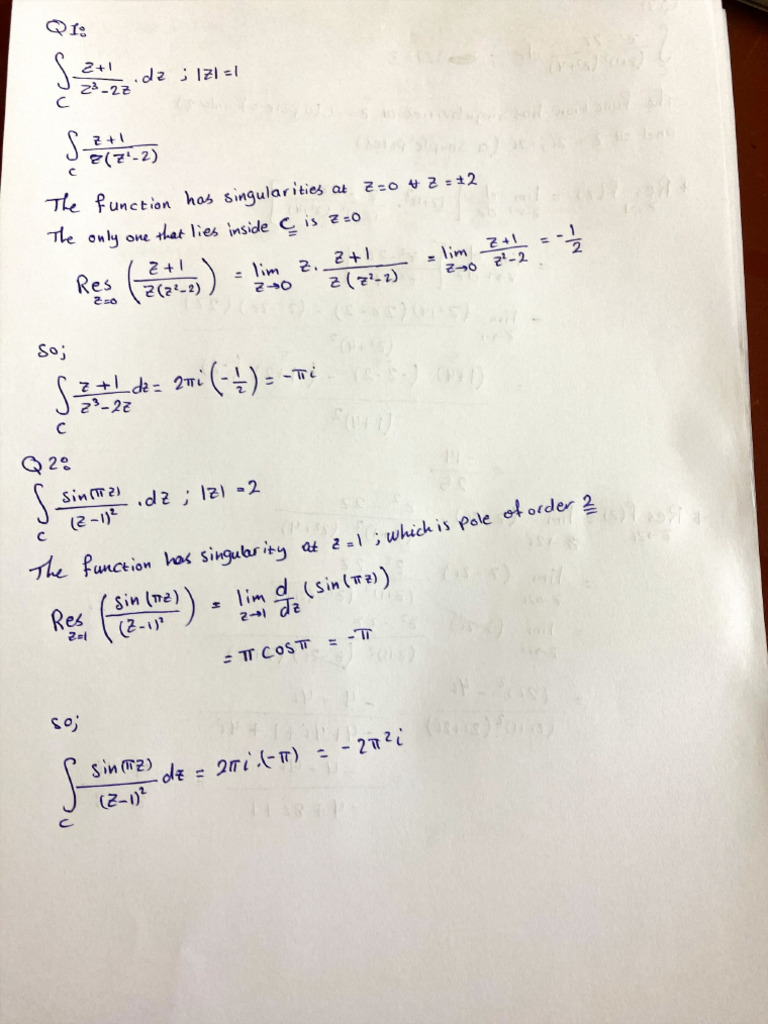 Q1:
∫_C (z+1)/(z³-2z) . dz ; |z| = 1
∫_C (z+1)/(z(z²-2))
The function has singularities at z=0 & z = ±2
The only one that lies inside C is z=0
Res_{z=0} ((z+1)/(z(z²-2))) = lim_{z→0} z. (z+1)/(z(z²-2)) = lim_{z→0} (z+1)/(z²-2) = -1/2
So;
∫_C (z+1)/(z³-2z) dz = 2πi (-1/2) = -πi
Q2:
∫_C sin(πz)/(z-1)² . dz ; |z| = 2
The function has singularity at z=1 ; which is pole of order 2
Res_{z=1} (sin(πz)/(z-1)²) = lim_{z→1} d/dz (sin(πz))
= π cosπ = -π
so;
∫_C sin(πz)/(z-1)² dz = 2πi.(-π) = -2π²i